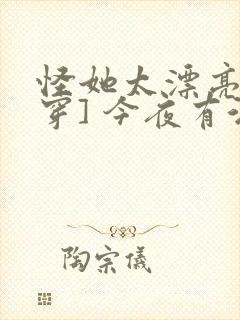 怪她太漂亮
穿] 今夜有
陶宗儀